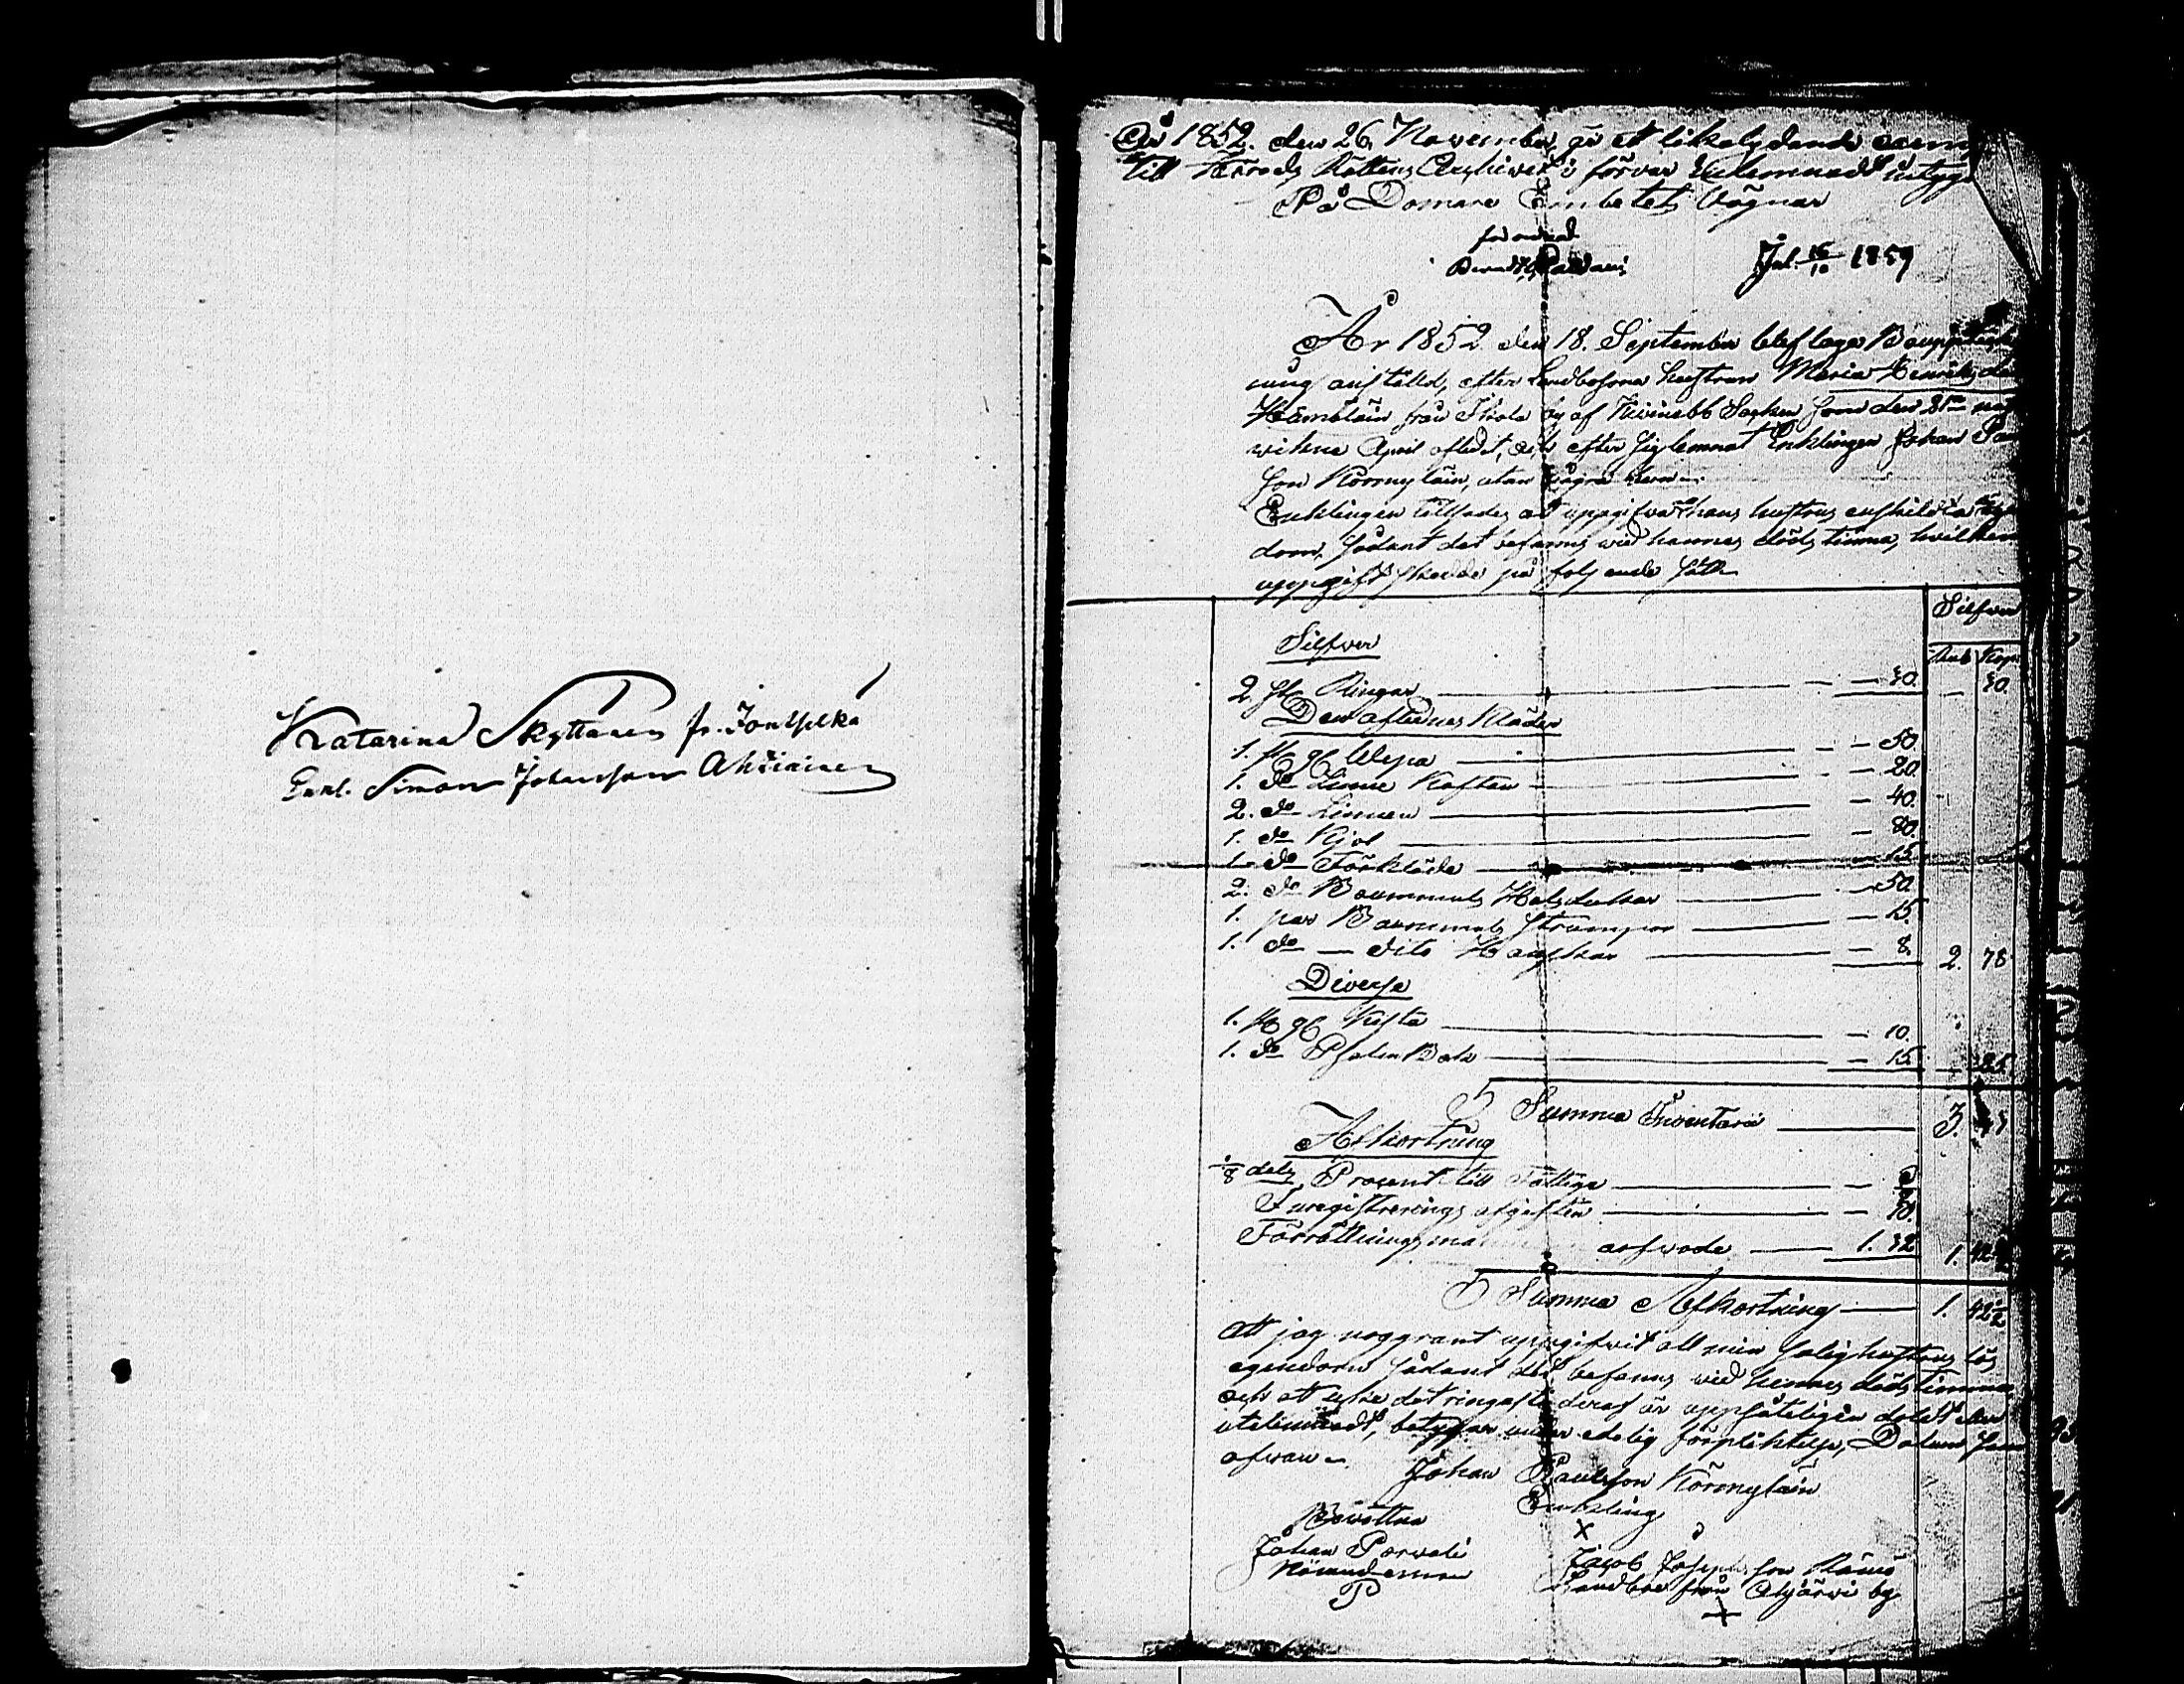 Katarina Skyttanen fr. Jontselkä
Enkl. Simon Johansson Ahtiainen
År 1852. den 26 November, är ett likalydande exem
till Härads Rättens Archivet i förvar inlemnadt intyga
På Domare Embetets Vägnar
Jnl. 15/10 1859
År 1852 den 18. September blef laga Bouppteck
ning anstäld, efter Landbofrua hustrun Maria Henriksdr
Hämäläin från Ihola by af Kivinebb Socken som den 21sta
wikne April afledit, och efter sig lemnat Enklingen Johan Pau
son Környläin, utan några barn.
Enklingen tillsades at uppgifva hans hustrus enskilda ägen
dom, sådant det befanns wid hennes döds timma, hvilken
uppgift skedde på följande sätt
Silfver
Rub Kop
Silfver
2 st. Ringar — — 30. — 30
Den aflednes Kläder
1. st. gl. Wepa — — 50.
1. do Linne Kaftan — 20.
2. do Linnen — 40.
1. do Kjol — 80.
1. do Förkläde — 15
2. do Bommuls Halsdukar — 50.
1. par Bommuls strumpor — 15.
1. do — dito Handskar — 8. 2. 78
Diverse
1. st. gl. Kista — 10.
1. do Psalm Bok — 15. 25
Summa Inventarii — 3.
Afkortning
1/8 dels Procent till Fattiga
Inregistrerings afgiften — 10.
Förrättningsma arfvode — 1. 32 1. 42 1/2
Summa Afkortning — 1. 42 1/2
Att jag noggrant uppgifvit all min salig hustrus lös
egendom sådant det befanns wid hennes dödstimma,
och att icke det ringaste deraf är uppsåteligen doldt eller
utelemnadt, betygar under edelig förpliktelse, Datum som
ofvan.
Johan Paulsson Környläin
Enkling
X
Bevittna
Johan Parvali
Nämndeman
P
Jacob Josephsson Rämö
Landboe från Ahjärvi by
X